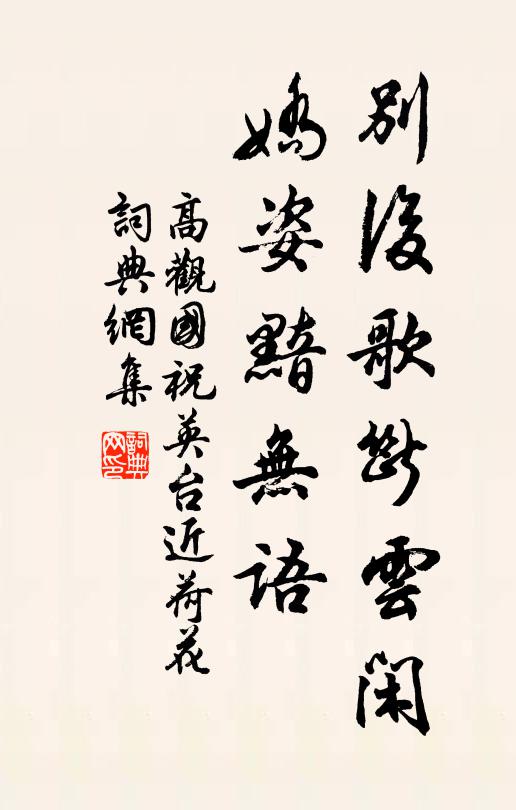 別後歌斷雲閑
嬌姿黯無語
高觀國祝英台近荷花
詞典網集
詞典网印